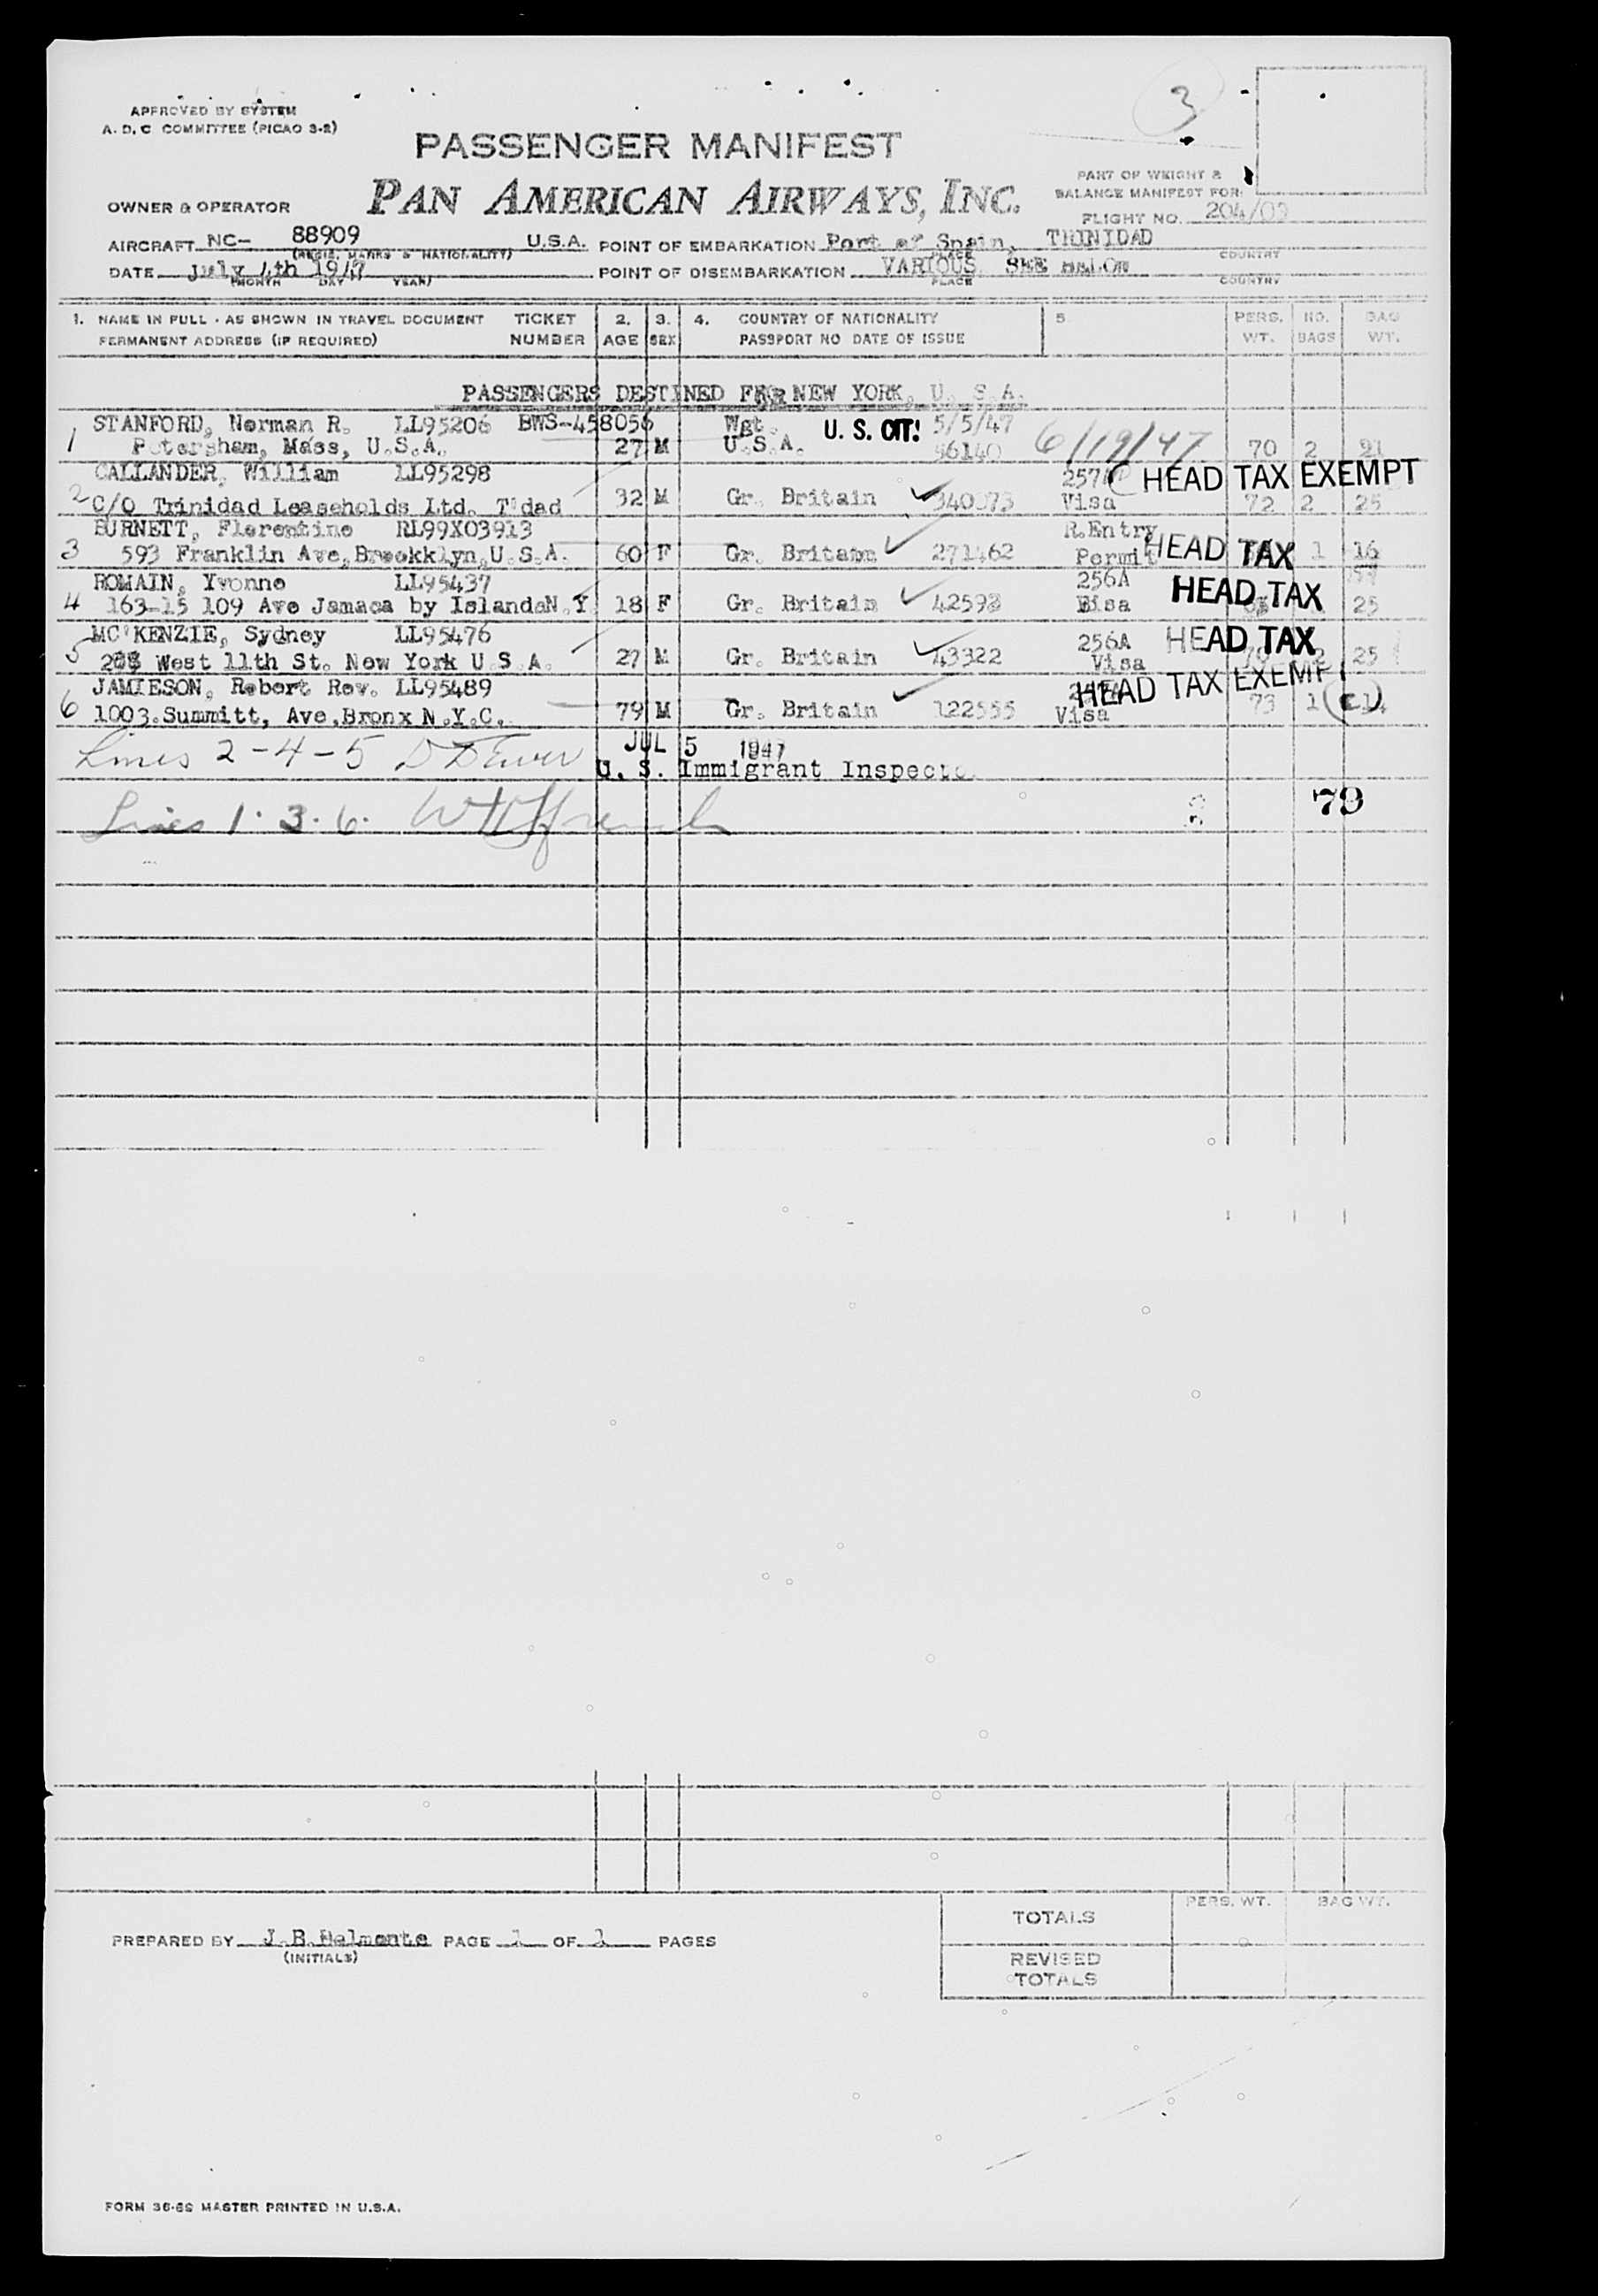 3
APPROVED BY SYSTEM
A. D. C COMMITTEE (PICAO 3-2)
PASSENGER MANIFEST
PART OF WEIGHT &
BALANCE MANIFEST FOR:
OWNER & OPERATOR PAN AMERICAN AIRWAYS, INC.
FLIGHT NO. 204/03
AIRCRAFT NC- 88909 U.S.A. POINT OF EMBARKATION Port of Spain, TRINIDAD
(REGIS. MARKS & NATIONALITY) PLACE COUNTRY
DATE July 4th 1947 POINT OF DISEMBARKATION VARIOUS SEE BELOW
MONTH DAY YEAR) PLACE COUNTRY
1. NAME IN FULL - AS SHOWN IN TRAVEL DOCUMENT TICKET 2. 3. 4. COUNTRY OF NATIONALITY 5 PERS. NO. BAG
PERMANENT ADDRESS (IF REQUIRED) NUMBER AGE SEX PASSPORT NO DATE OF ISSUE WT. BAGS WT.
PASSENGERS DESTINED FOR NEW YORK, U. S. A.
STANFORD, Norman R. LL95206 BWS-458056 Wgt. U. S. CIT! 5/5/47
1 Petersham, Mass, U.S.A. 27 M U.S.A. 56140 6/19/47 70 2 21
CALLANDER, William LL95298 257 HEAD TAX EXEMPT
2 C/O Trinidad Leaseholds Ltd. T'dad 32 M Gr. Britain 340073 Visa 72 2 25
BURNETT, Florentine RL99X03913 R.Entry
3 593 Franklin Ave, Brookklyn, U.S.A. 60 F Gr. Britain 271462 Permit HEAD TAX 1 16
ROMAIN, Yvonne LL95437 256A HEAD TAX
4 163-15 109 Ave Jamaca by IslandaN.Y. 18 F Gr. Britain 42593 25
MC'KENZIE, Sydney LL95476 256A HEAD TAX
5 West 11th St. New York U.S.A. 27 M Gr. Britain 43322 Visa 70 2 25
JAMIESON, Robert Rev. LL95489 HEAD TAX EXEMP
6 1003.Summitt, Ave,Bronx N.Y.C. 79 M Gr. Britain 122555 Visa 73 1 (C) 14
Lines 2-4-5 JUL 5 1947
U. S. Immigrant Inspector
Lines 1.3.6. 79
PREPARED BY J.B.Delmonte PAGE 1 OF 1 PAGES
(INITIALS)
PERS. WT. BAG WT.
TOTALS
REVISED
TOTALS
FORM 36-69 MASTER PRINTED IN U.S.A.